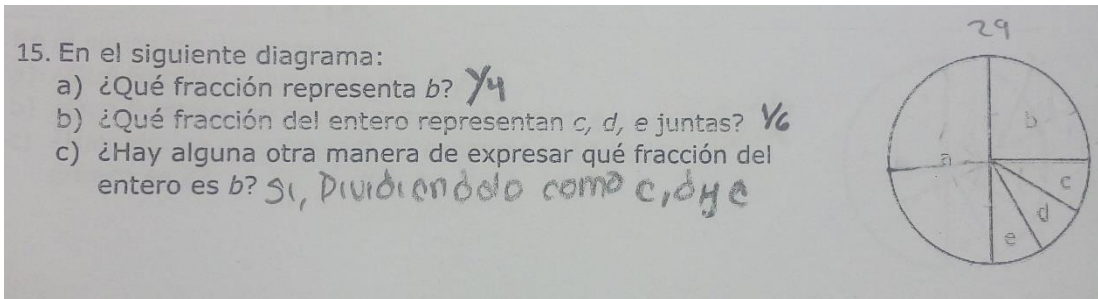 29
15. En el siguiente diagrama:
a) ¿Qué fracción representa b? 1/4
b) ¿Qué fracción del entero representan c, d, e juntas? 1/6
c) ¿Hay alguna otra manera de expresar qué fracción del
entero es b? Si, Dividiendolo como c, d y e
b
a
c
d
e